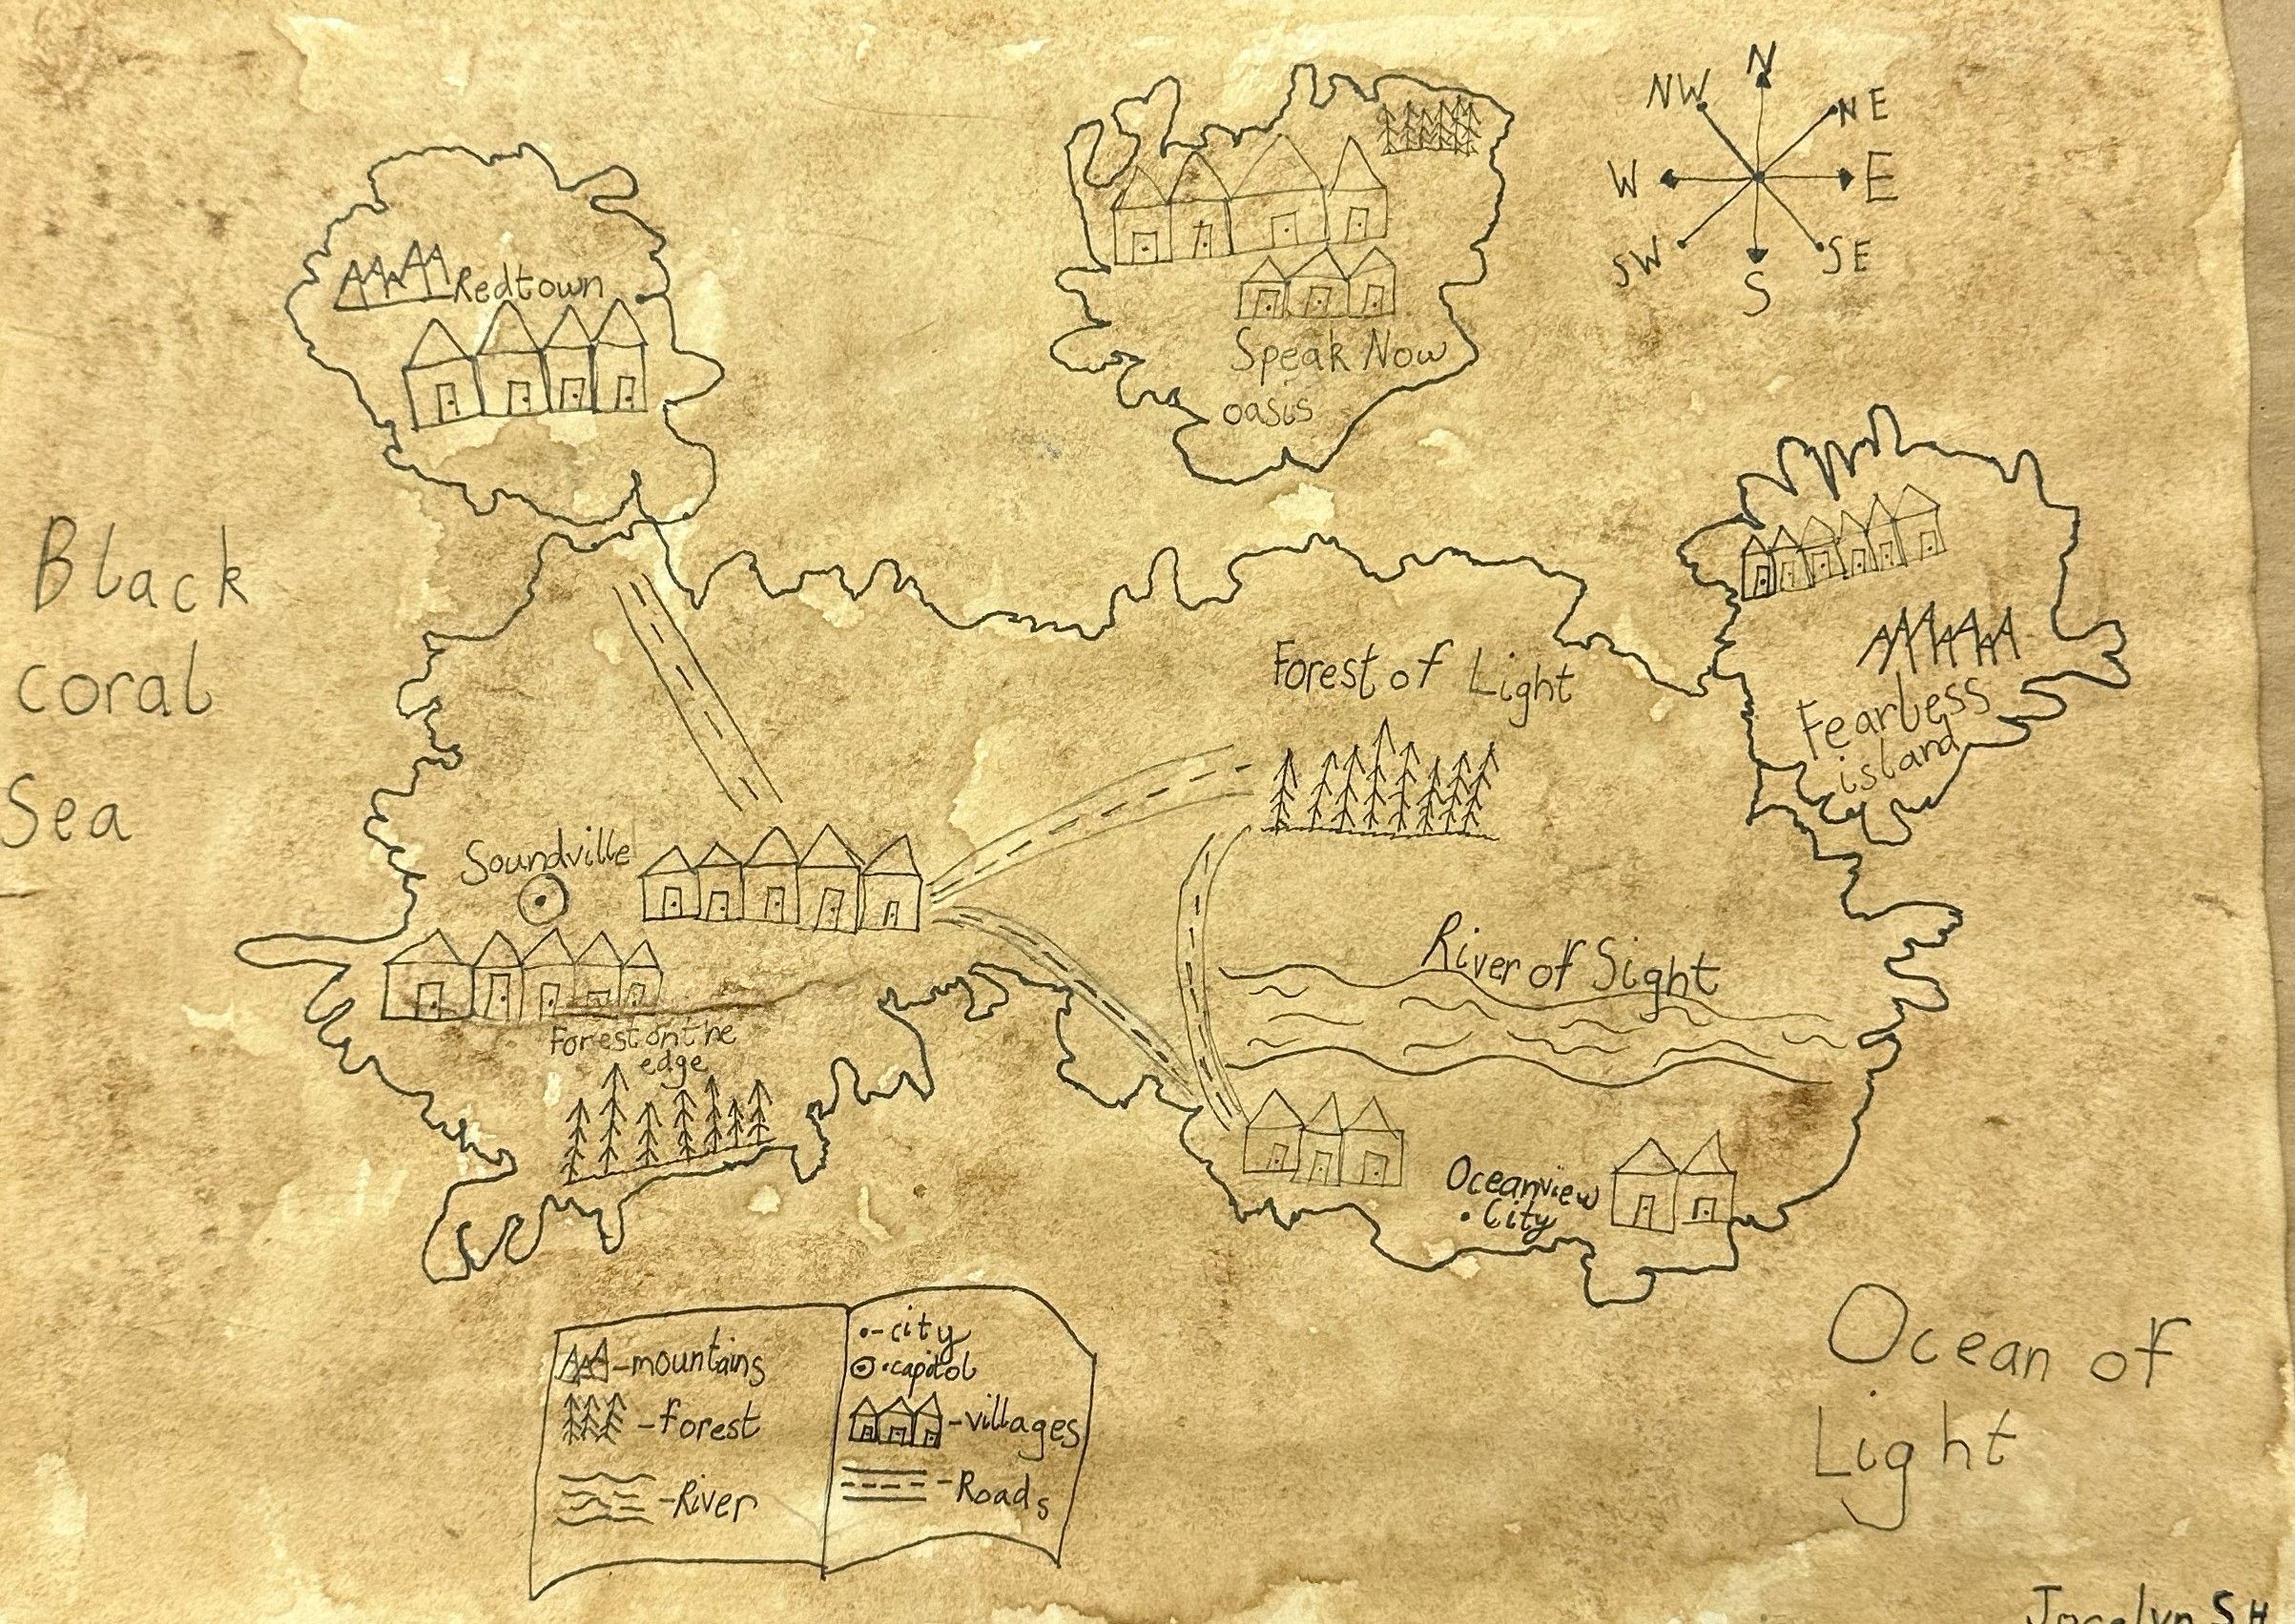 N
NW
NE
W
E
SW
SE
S
Redtown
Speak Now
oasis
Black
coral
Sea
Fearless
island
Forest of Light
Soundville
River of Sight
Forest on the
edge
Oceanview
City
-mountains
-forest
-River
-city
capitol
-villages
-Roads
Ocean of
Light
Jocelyn SH